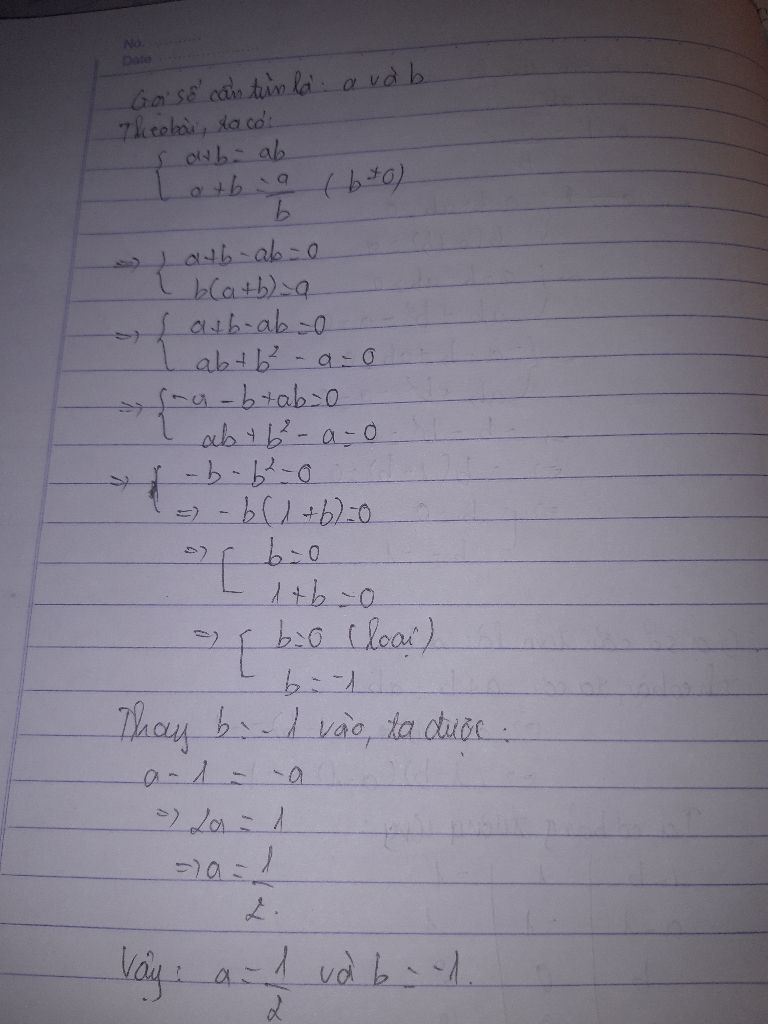 No. ............
Date ........................
Gọi số cần tìm là: a và b
Theo bài, ta có:
{ a+b = ab
a+b = a/b (b≠0)
=> { a+b-ab=0
b(a+b)=a
=> { a+b-ab=0
ab+b²-a=0
=> { -a-b+ab=0
ab+b²-a=0
=> { -b-b²=0
=> -b(1+b)=0
=> [ b=0
1+b=0
=> [ b=0 (loại)
b=-1
Thay b=-1 vào, ta được:
a-1 = -a
=> 2a = 1
=> a = 1/2.
Vậy: a = 1/2 và b = -1.